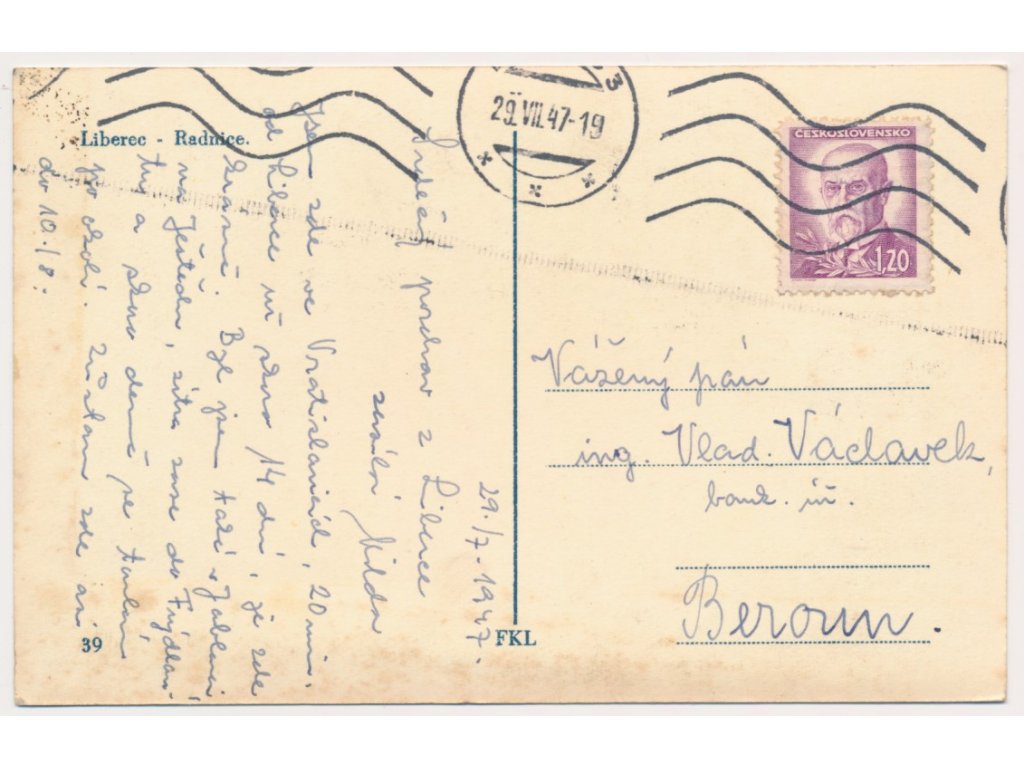 Liberec - Radnice.
29.VII.47-19
ČESKOSLOVENSKO
1,20
29./7. 1947.
Srdečný pozdrav z Liberce
Milda
Jsem zde ve Vratislavicích, 20 min.
od Liberce už 14 dní, je zde
Byl jsem také v Jablonci
na Ještědu, zítra zase do Frýdlan-
tu a
po okolí. Zůstanu zde asi
do 10./8.
Vážený pán
ing. Vlad. Václavek,
bank. úř.
Beroun.
39
FKL